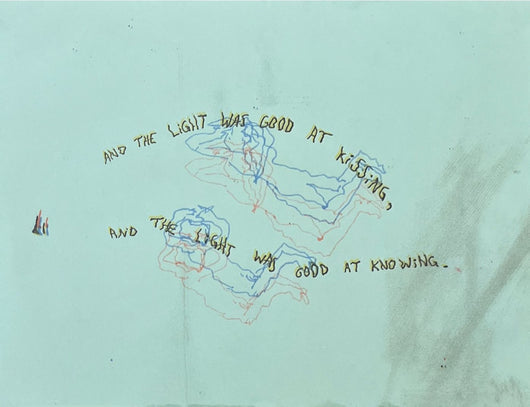 AND THE LiGHT WAS GOOD AT KiSSiNG,
AND THE LIGHT WAS GOOD AT KNOWiNG.